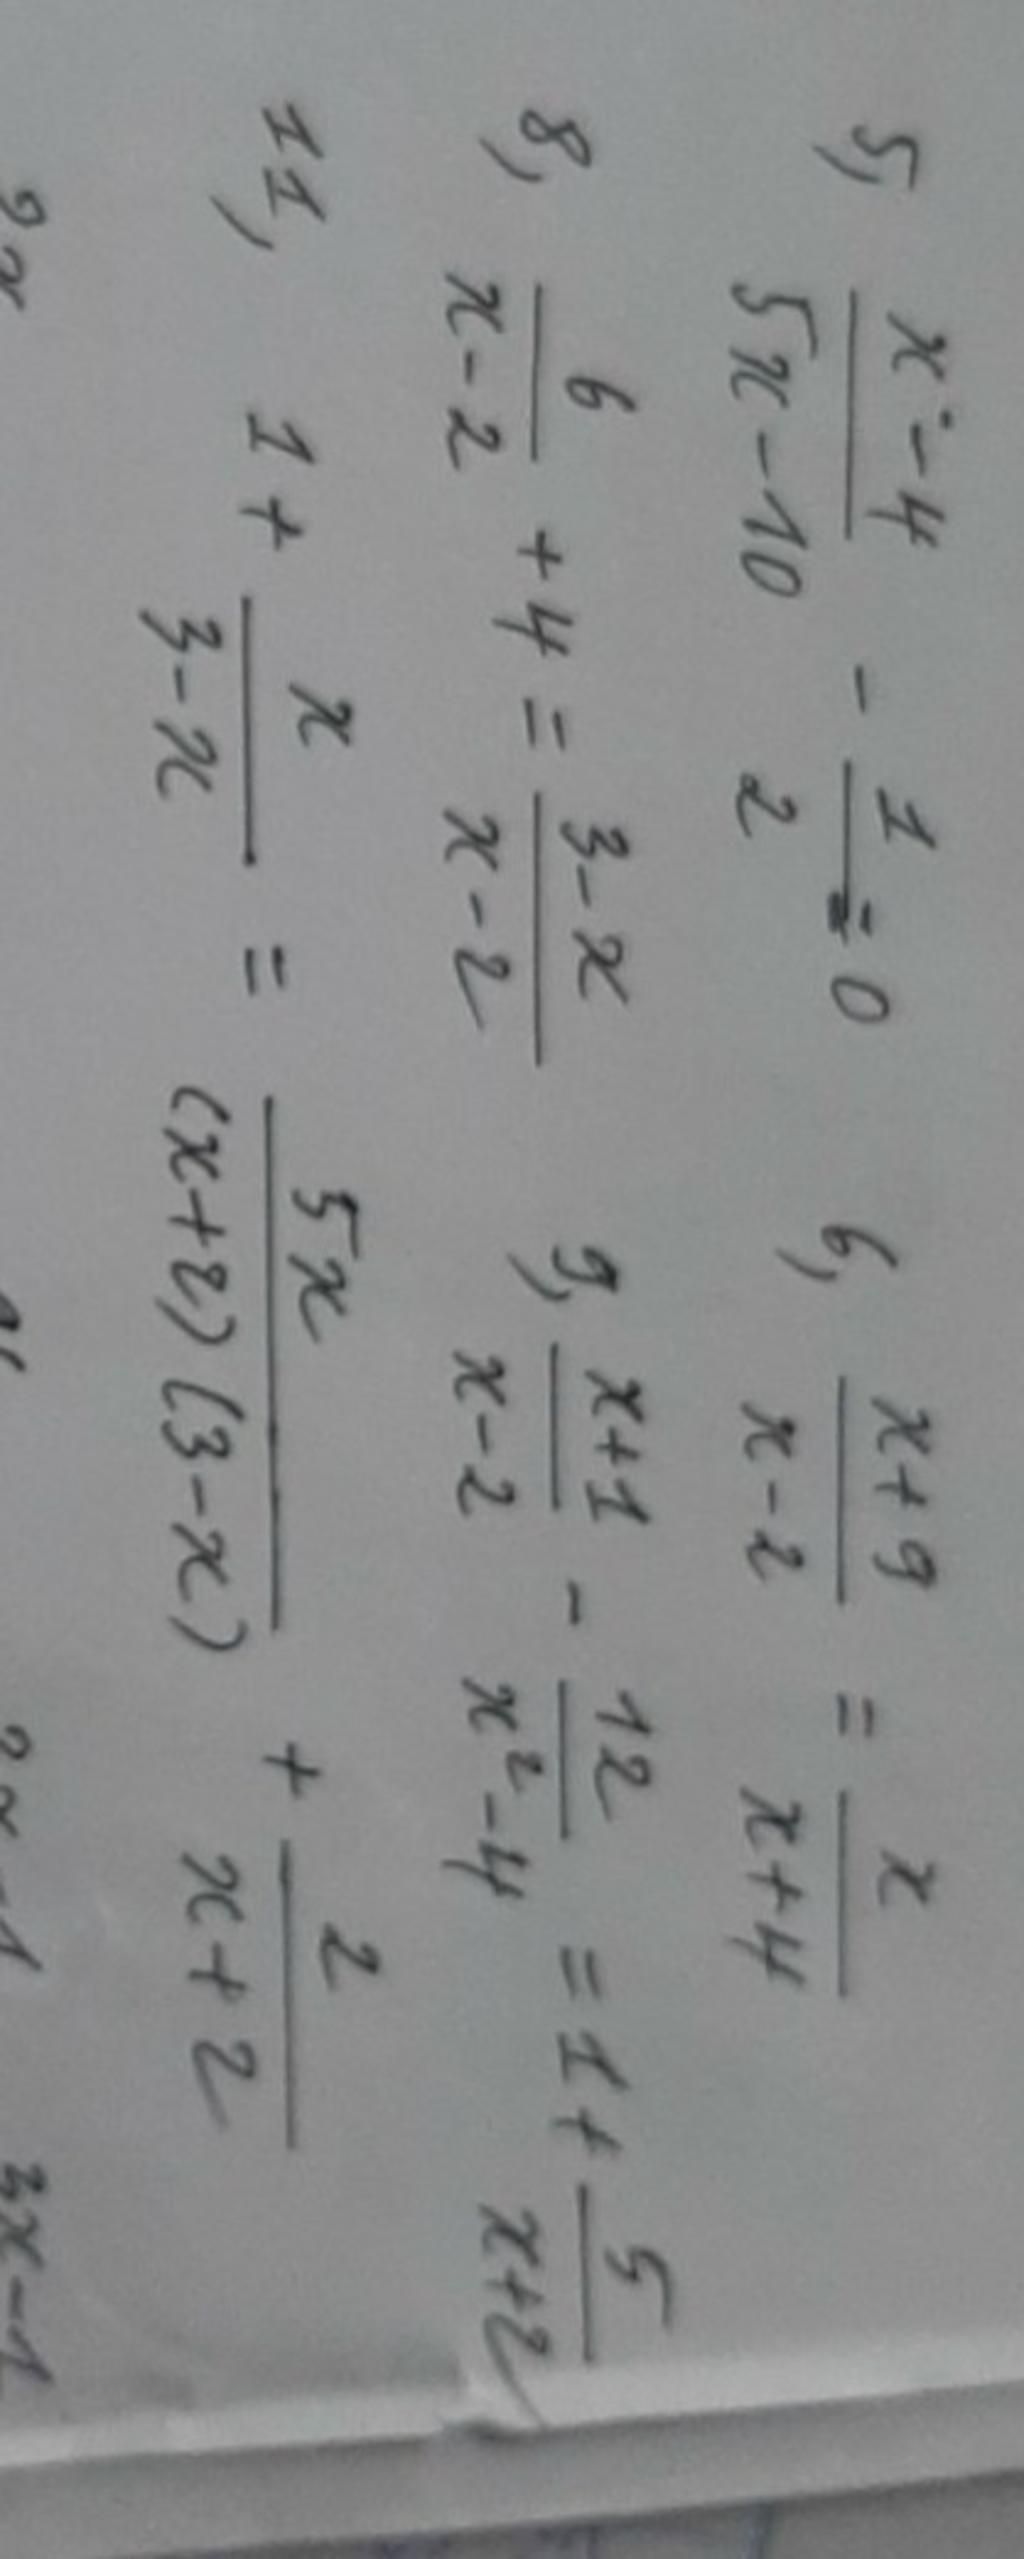 5) x-4/5x-10 - 1/2 = 0 6) x+9/x-2 = x/x+4
8) 6/x-2 + 4 = 3-x/x-2 9) x+1/x-2 - 12/x²-4 = 1 + 5/x+2
11) 1 + x/3-x = 5x/(x+2)(3-x) + 2/x+2
3x-1